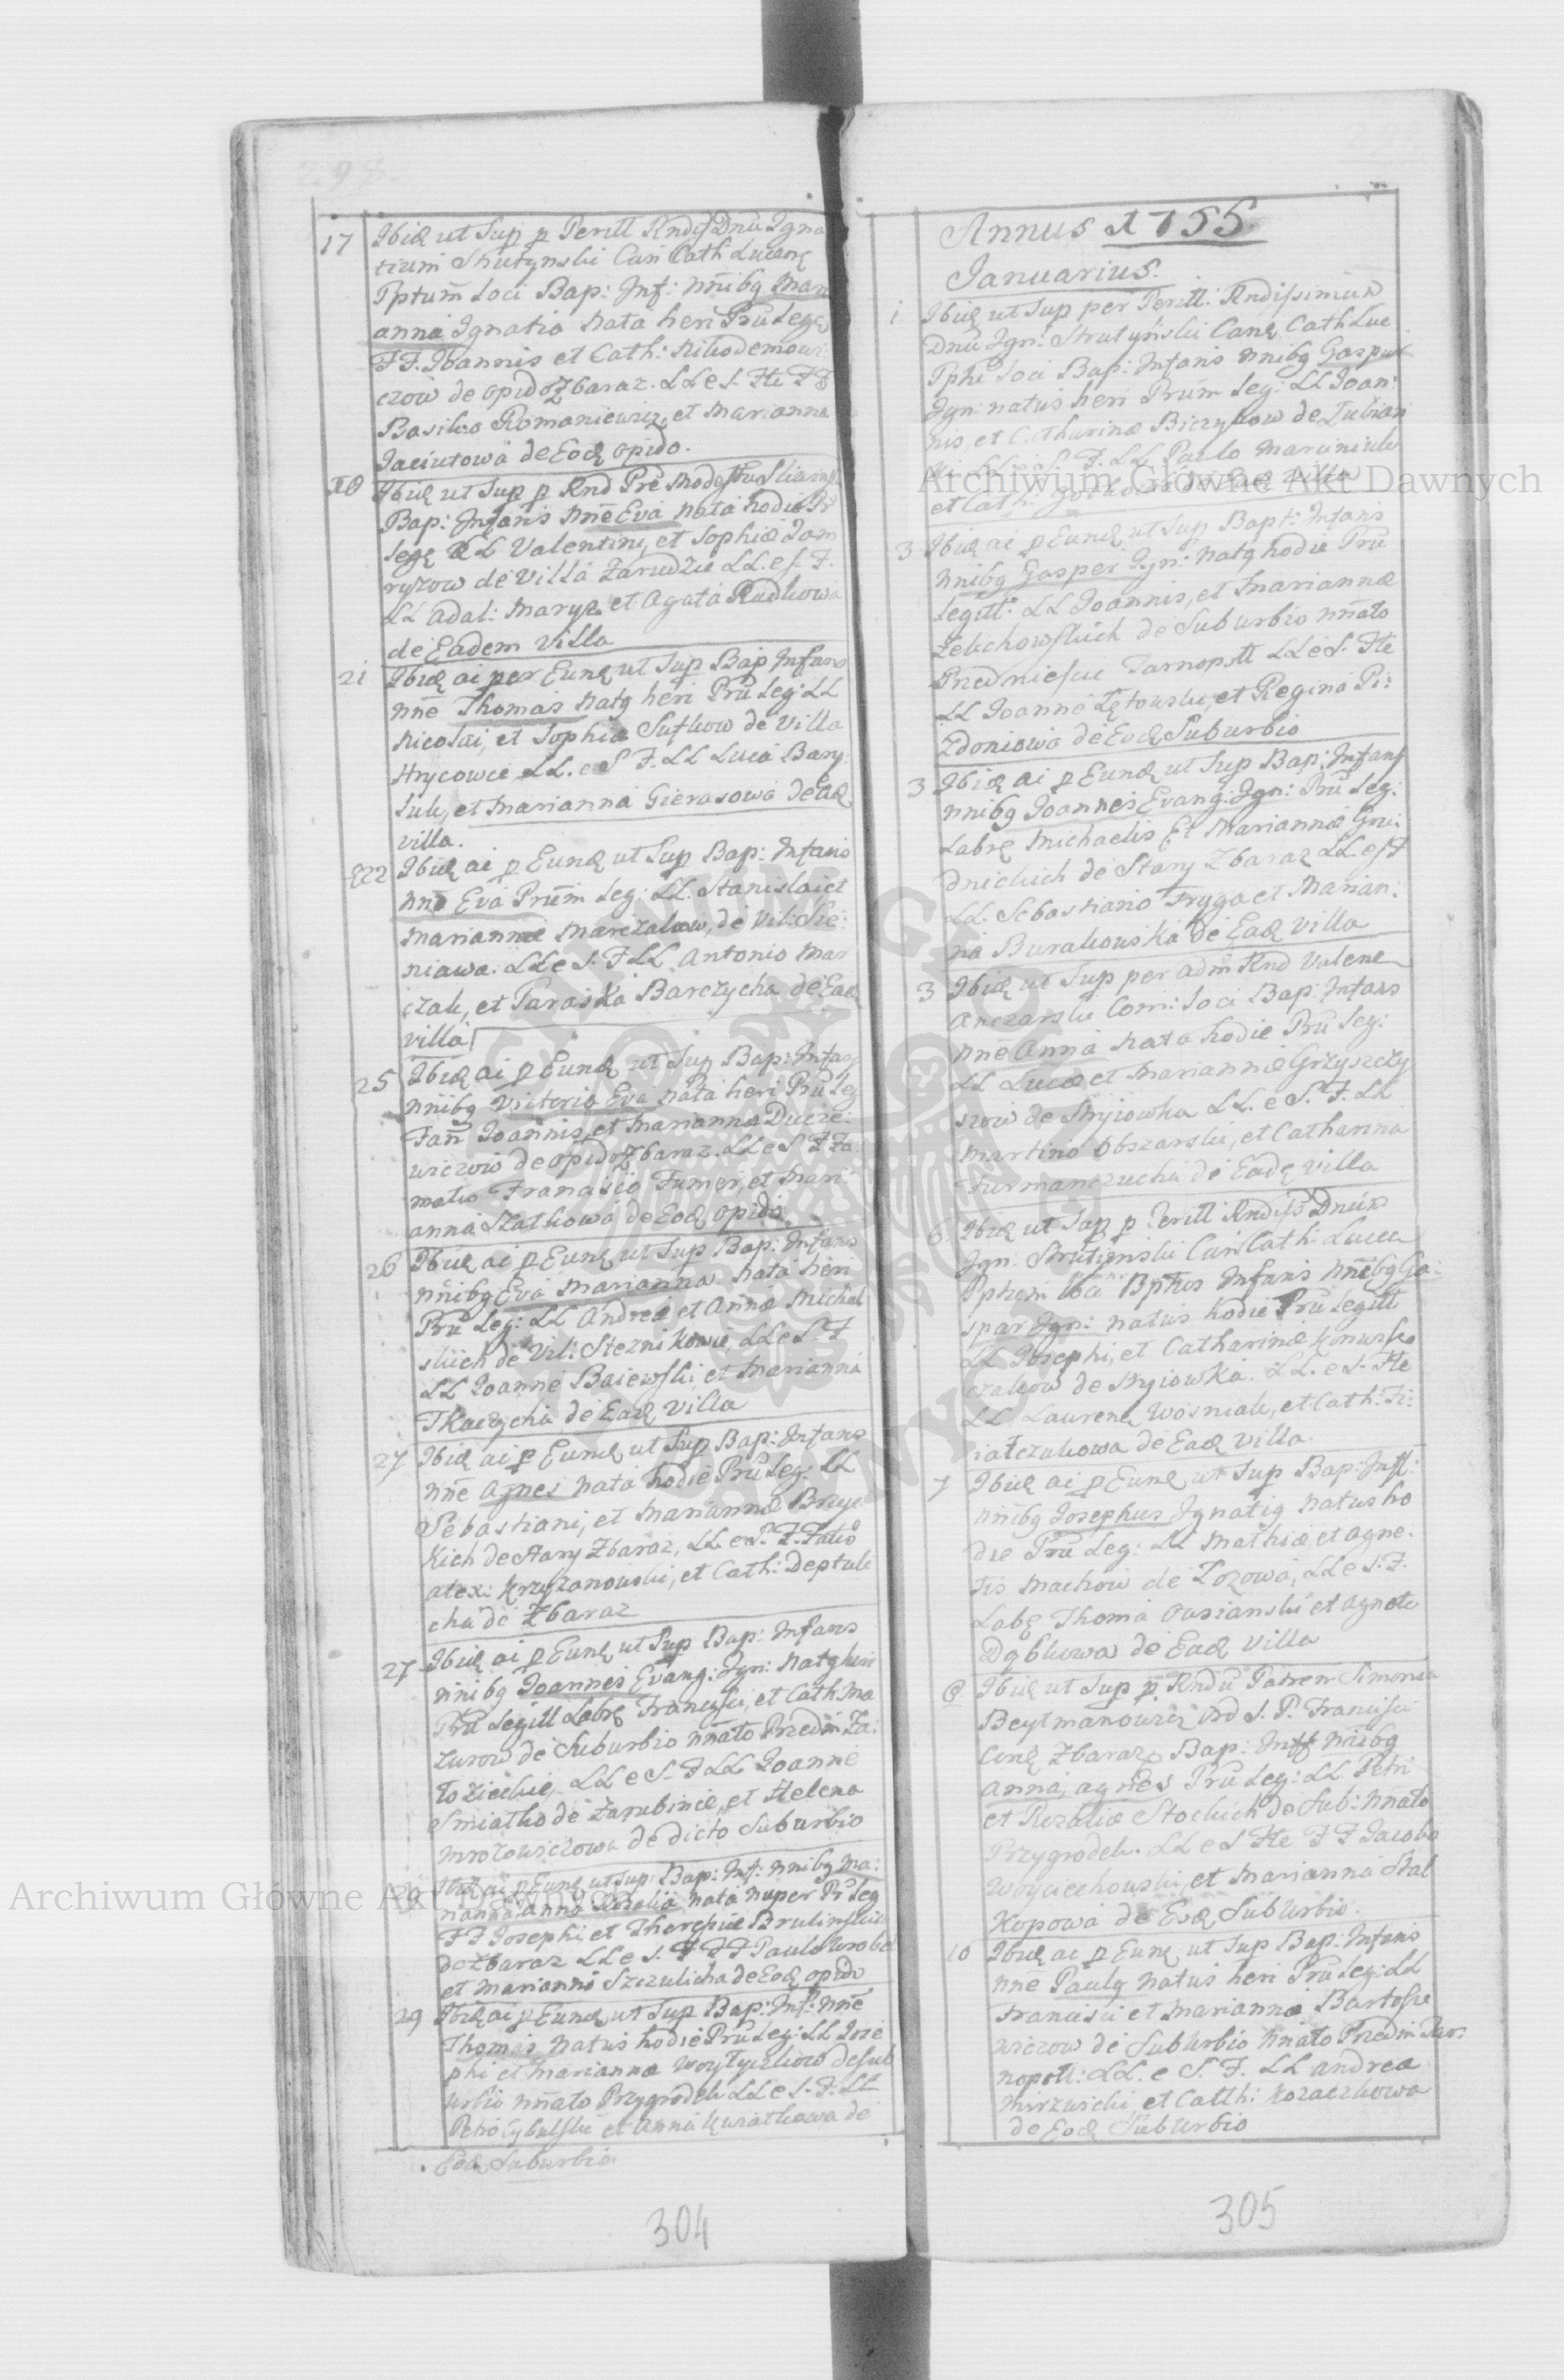 17 Ibid ut Sup p Perill Rndiss Dnū Igna
tium Strutynski Can Cath Luceor
Pptum Loci Bap: Inf: nnibg Mari
anna Ignatia nata heri Pru Lege
FF. Joannis et Cath: Nikodemowi
czow de opido Zbaraz. LL e S. Fte FF
Basilio Romaniewicz et Marianna
Jaciutowa de Eod opido.
18 Ibid ut Sup p Rnd Pre Modestu
Bap: Infans nne Eva nata hodie Pr
Lege LL Valentini, et Sophiæ Jam
ryzow de Villa Zarudzie LL. e S. F.
LL Adal: Maryz et Agata Rudkowa
de Eadem Villa
21 Ibid ai per Eund ut Sup Bap Infans
nne Thomas natg heri Pru Leg: LL
Nicolai, et Sophiæ Sutkow de Villa
Hrycowce LL. e S F. LL Luca Bary
luk, et Marianna Gierasowa de Ead
villa.
22 Ibid ai p Eund ut Sup Bap: Infans
nne Eva Prum Leg: LL. Stanislai et
Mariannæ Marczakow, de Vil: Sie:
niawa. LL e S. F LL Antonio Mar
czak, et Paraska Barczycha de Ead
villa
25 Ibid ai p Eund ut Sup Bap: Infans
nnibg Victoria Eva nata heri Pru Leg
Fam Joannis, et Marianna Ducze:
wiczow de opido Zbaraz. LL e S F Fa
mato Francisco Fumer, et Mari
anna Szatkowa de Eod opido
26 Ibid ai p Eund ut Sup Bap: Infans
nnibg Eva Marianna nata heri
Pru Leg: LL Andreæ et Annæ Michal
skich de Vil: Steznikowie, LL e S. F
LL Joanne Baiewski, et Marianna
Tkaczycha de Ead Villa
27 Ibid ai p Eund ut Sup Bap: Infans
nne Agnes nata hodie Pru Leg: LL
Sebastiani, et Mariannæ Brzye
kich de Stary Zbaraz, LL e S. F. Fato
Alex: Krzyzanowski, et Cath: Deptule
cha de Zbaraz
27 Ibid ai p Eund ut Sup Bap: Infans
nnibg Joannes Evang: Ign: natg heri
Pru Legitt Labr Francisci, et Cath: Ma
zurow de Suburbio nnato Przedm Za:
łozieckie, LL e S. F LL Joanne
Smiatko de Zarubince, et Helena
Mrozowiczowa de dicto Suburbio
29 Ibid ai p Eund ut Sup Bap: Inf: nnibg Ma:
rianna Anna Rosalia nata nuper Pr Leg
FF Josephi et Theresiæ Brulinskich
de Zbaraz LL e S. F FF Paulo Wrobel
et Marianna Szczulicha de Eod opido
29 Ibid ai p Eund ut Sup Bap: Inf: nne
Thomas natus hodie Pru Leg: LL Jose
phi et Mariannæ Woytyczkow de Sub
urbio nnato Przygrodek LL e S. F. LL
Petro Cybulski et Anna Kwiatkowa de
Eod Suburbio.
304
Annus 1755
Januarius.
1 Ibid ut Sup per Perill: Rndissimum
Dnū Ign: Strutynski Cane Cath Luc
Pphi Loci Bap: Infans nnibg Gaspar
Ign: natus heri Prum Leg: LL Joan:
nis, et Catharinæ Biczykow de Lubian
ki LL e S. F. LL Paulo Marciniuk
et Cath: de Ead Villa
3 Ibid ai p Eund ut Sup Bapt: Infans
nnibg Gasper Ign: natg hodie Pru
Legitt: LL Joannis, et Mariannæ
Zelichowskich de Suburbio nnato
Przedmiescie Tarnopoll LL e S. Fte
LL Joanne Łętowski, et Regina Pi:
zdoniowa de Eod Suburbio
3 Ibid ai p Eund ut Sup Bap: Infans
nnibg Joannes Evang: Ign: Pru Leg:
Labr Michaelis, Et Mariannæ Gru:
dnickich de Stary Zbaraz LL. e S F
LL. Sebastiano Fryga et Marian:
na Burakowska de Ead Villa
3 Ibid ut Sup per adm Rnd Valent
Anczarski Com: Loci Bap: Infans
nne Anna nata hodie Pru Leg:
LL Lucæ et Mariannæ Grzyszczy
szow de Stryiowka LL. e S. F. LL
Martino Obszarski, et Catharina
Furmanczucha de Eade villa
6 Ibid ut Sup p Perill Rndiss Dnum
Ign: Strutynski Can Cath: Lucen
Pphem loci Bptus Infans nnibg Ga:
spar Ign: natus hodie Pru Legitt
LL Josephi, et Catharinæ Konusz
czakow de Stryiowka. LL. e S. Fte
LL Laurent Wosniak, et Cath: Fi:
iałczukowa de Ead Villa.
7 Ibid ai p Eund ut Sup Bap: Inf:
nnibg Josephus Ignatig natus ho
die Pru Leg: LL Mathiæ, et Agne:
tis Machow de Łozowa, LL e S. F.
Labr Thoma Owsianski et Agnete
Dąbkowa de Ead Villa
8 Ibid ut Sup p Rndu Patrem Simonem
Beytmanowicz Ord S. P. Francisci
Conv Zbaraz Bap: Inff nnibg
Anna, Agnes Pru Leg: LL Petri
et Rozaliæ Stockich de Sub: nnato
Przygrodek. LL e S Fte FF Jacobo
Woyciechowski, et Marianna Skal
Kopowa de Eod Suburbio.
10 Ibid ai p Eund ut Sup Bap: Infans
nne Paulg natus heri Pru Leg: LL
Francisci et Mariannæ Bartosie
wiczow de Suburbio nnato Przedm Tar:
nopoll: LL. e S. F. LL Andrea
Mirzwicki, et Catth: Kozaczkowa
de Eod Suburbio
305
Archiwum Główne Akt Dawnych
Archiwum Główne Akt Dawnych